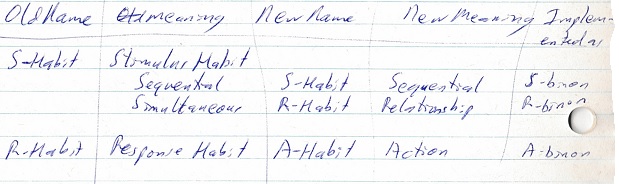 Old Name Old meaning New Name New Meaning Implem-
ented as
S-Habit Stimulus Habit
Sequential S-Habit Sequential S-binon
Simultaneous R-Habit Relationship R-binon
R-Habit Response Habit A-Habit Action A-binon